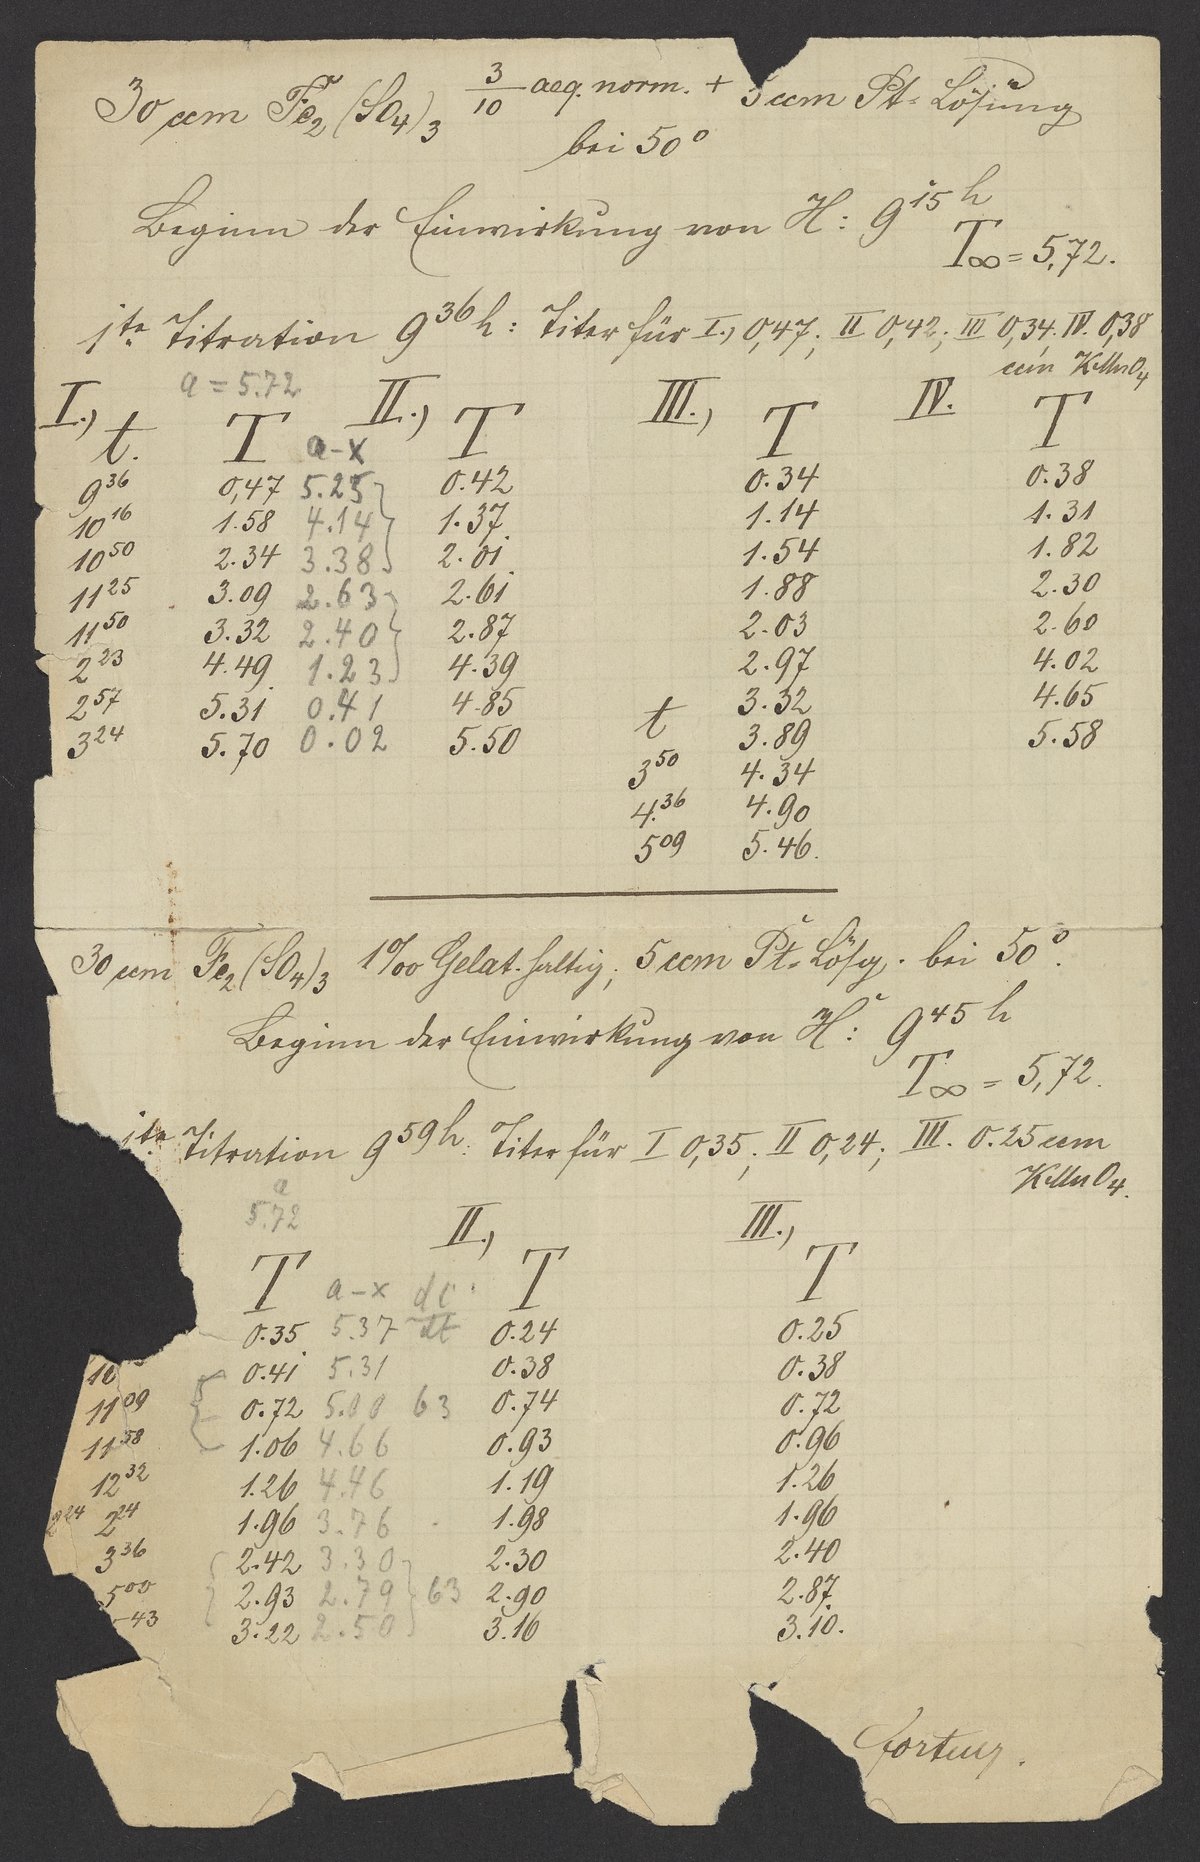 30 ccm Fe2(SO4)3 3/10 aeq. norm. + 5 ccm Pt-Lösung
bei 50°
Beginn der Einwirkung von H: 9 15 h
T∞ = 5,72.
1te Titration 9 36 h: Titer für I., 0,47; II 0,42; III 0,34; IV. 0,38
ccm KMnO4
I., a = 5.72 II., III., IV.
t. T a-x T T T
9 36 0,47 5.25 0.42 0.34 0.38
10 16 1.58 4.14 1.37 1.14 1.31
10 50 2.34 3.38 2.01 1.54 1.82
11 25 3.09 2.63 2.61 1.88 2.30
11 50 3.32 2.40 2.87 2.03 2.60
2 23 4.49 1.23 4.39 2.97 4.02
2 57 5.31 0.41 4.85 3.32 4.65
3 24 5.70 0.02 5.50 t 3.89 5.58
3 50 4.34
4 36 4.90
5 09 5.46.
30 ccm Fe2(SO4)3 1‰ Gelat. haltig; 5 ccm Pt-Lösg. bei 50°.
Beginn der Einwirkung von H: 9 45 h
T∞ = 5,72.
1te Titration 9 59 h: Titer für I 0,35; II 0,24; III. 0.25 ccm
KMnO4.
a
5.72 II., III.,
T a-x dc/dt T T
0.35 5.37 0.24 0.25
10 0.41 5.31 0.38 0.38
11 09 0.72 5.00 63 0.74 0.72
11 58 1.06 4.66 0.93 0.96
12 32 1.26 4.46 1.19 1.26
2 24 2 24 1.96 3.76 1.98 1.96
3 36 2.42 3.30 2.30 2.40
5 00 2.93 2.79 63 2.90 2.87
43 3.22 2.50 3.16 3.10.